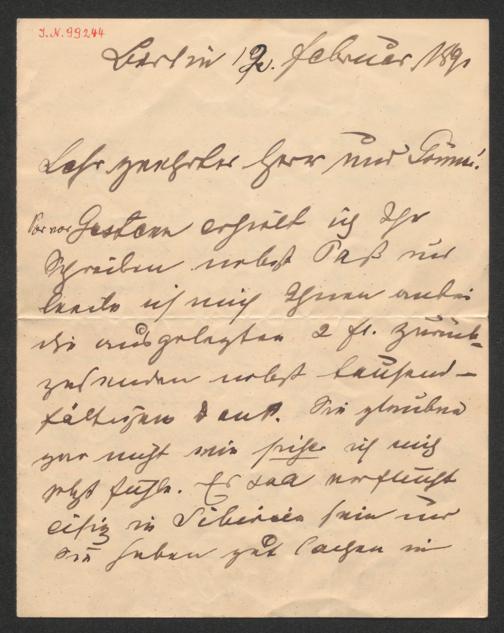 I.N. 99244
Berlin 12. Februar 189
Sehr geehrter Herr und Gönner!
Vor Gestern erhielt ich Ihr
Schreiben nebst Paß und
beeile ich mich Ihnen anbei
die ausgelegten 2 fl. zurück-
zusenden nebst tausend-
fältigem Dank. Sie glauben
gar nicht wie ich mich
jetzt fühle. Es verflucht
eisig in Sibirien sein und
Sie haben gut lachen in